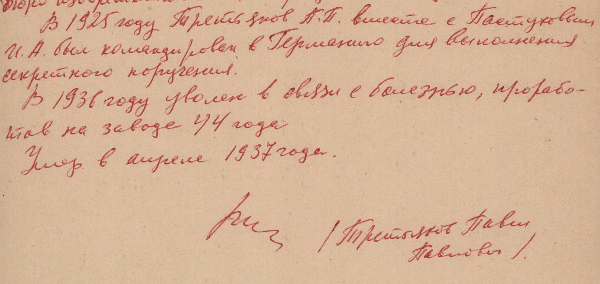 бюро изобрет
В 1925 году Третьяков А.П. вместе с Пастуховым
И.А. был командирован в Германию для выполнения
секретного поручения.
В 1936 году уволен в связи с болезнью, прорабо-
тав на заводе 44 года.
Умер в апреле 1937 года.
/ Третьяков Павел
Павлович /.